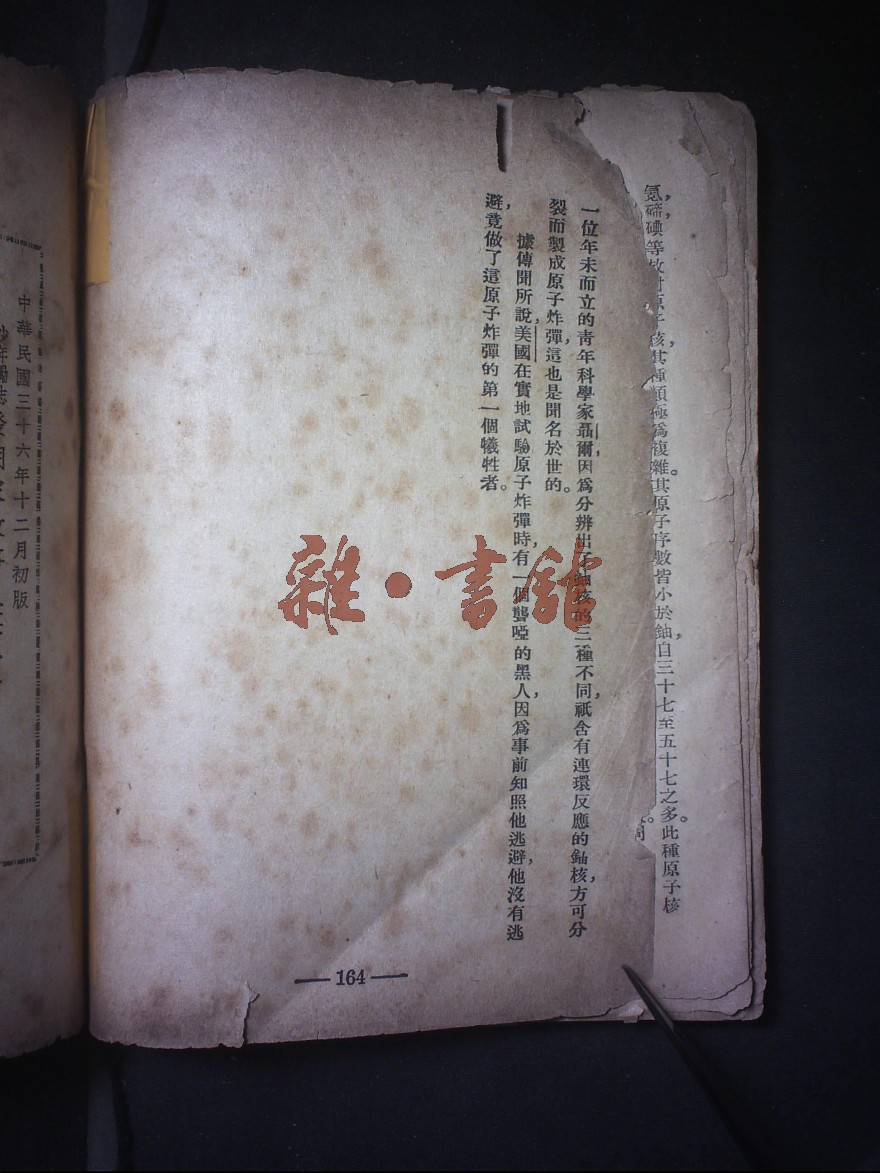 氪，碲，碘等
核，其種類極爲複雜。其原子序數皆小於鈾，自三十七至五十七之多。此種原子核
一位年未而立的青年科學家聶爾，因爲分辨出了鈾核的三種不同，祇含有連環反應的鈾核，方可分
裂而製成原子炸彈，這也是聞名於世的。
據傳聞所說，美國在實地試驗原子炸彈時，有一個聾啞的黑人，因爲事前知照他逃避，他沒有逃
避，竟做了這原子炸彈的第一個犧牲者。
雜·書館
— 164 —
中華民國三十六年十二月初版